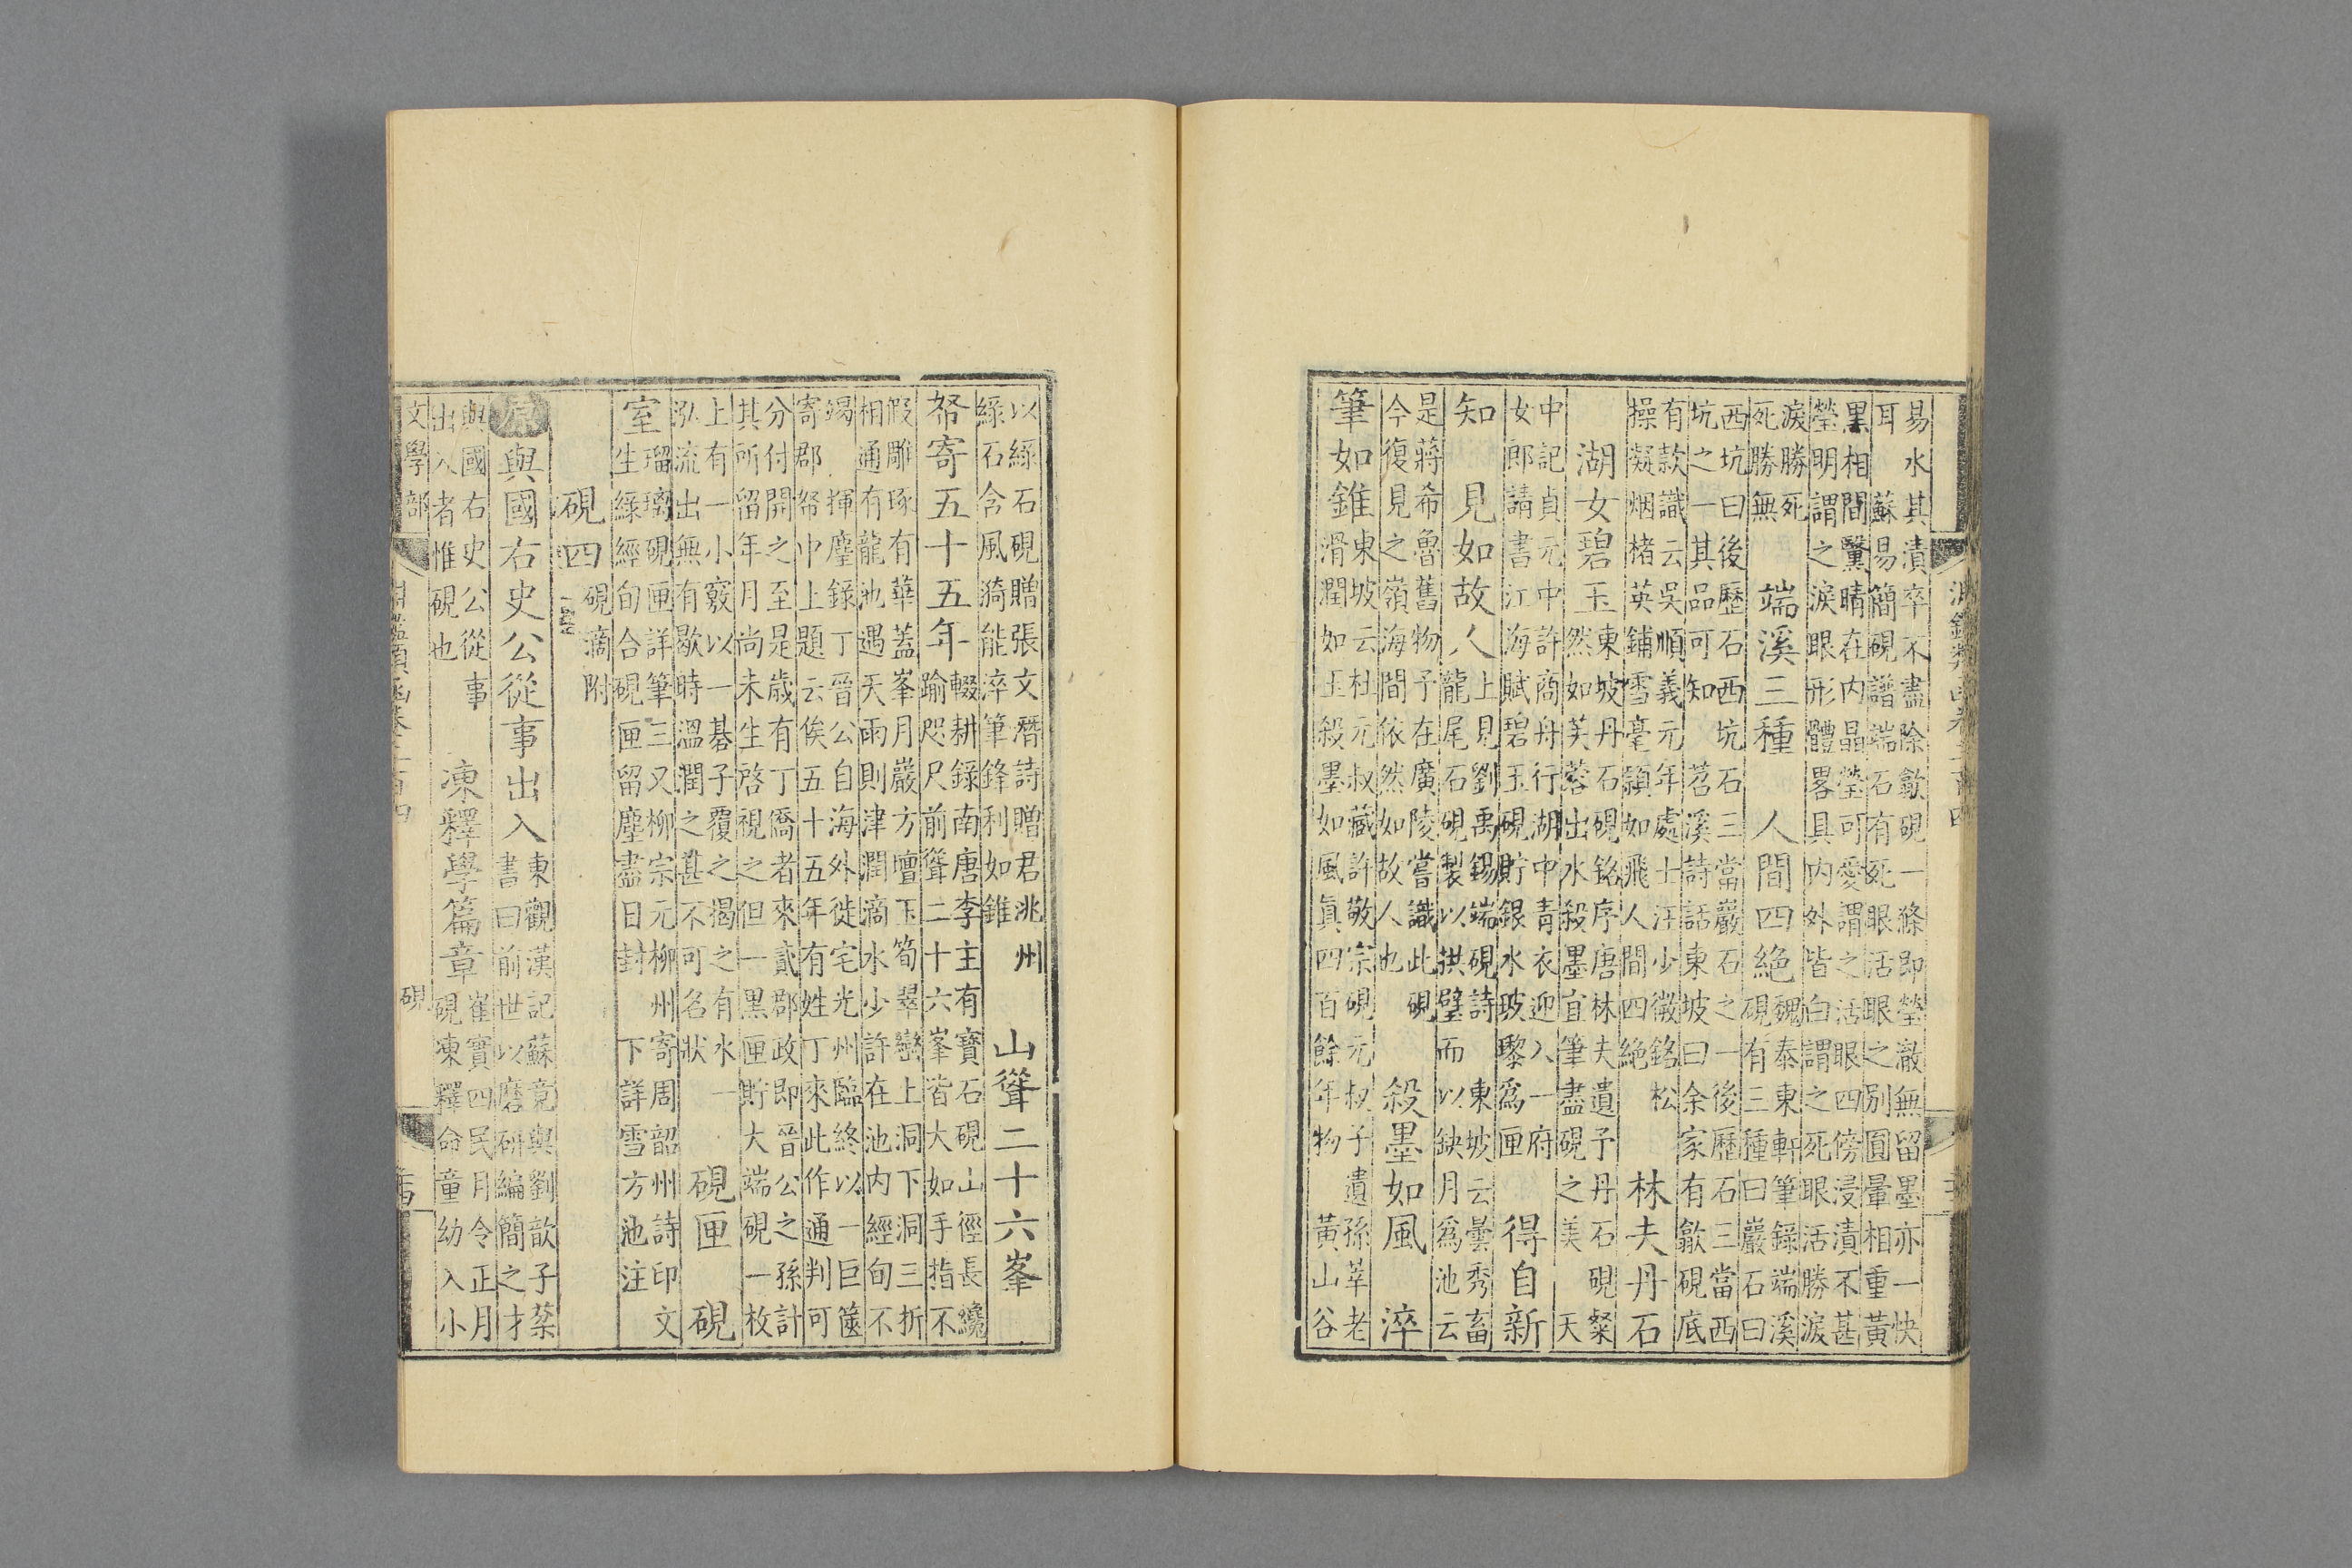 易水其漬卒不盡除歙硯一條即瑩澈無留墨亦一快
耳　蘇易簡硯譜端石有死眼活眼之別圓暈相重黃
黑相間黳睛在内晶瑩可愛謂之活眼四傍浸漬不甚
瑩明謂之淚眼形體畧具内外皆白謂之死眼活勝淚
淚勝死
死勝無
端溪三種
人間四絕
魏泰東軒筆錄端溪
硯有三種曰巖石曰
西坑曰後歷石西坑石三當巖石之一後歷石三當西
坑之一其品可知
苕溪詩話東坡曰余家有歙硯底
有款識云吳順義元年處士汪少微銘松
操凝烟楮英鋪雪毫穎如飛人間四絕
林夫丹石
湖女碧玉
東坡丹石硯銘序唐林夫遺予丹石硯粲
然如芙蓉出水殺墨宜筆盡硯之美
天
中記貞元中許商舟行湖中青衣迎入一府
女郎請書江海賦碧玉硯貯銀水玻黎為匣
得自新
知
見如故人
上見劉禹錫端硯詩
龍尾石硯製以拱璧而以缺月為池云
東坡云曇秀畜
是蔣希魯舊物予在廣陵嘗識此硯
今復見之嶺海間依然如故人也
殺墨如風
淬
筆如錐
東坡云杜元叔藏許敬宗硯元叔子遺孫莘老
滑潤如玉殺墨如風真四百餘年物
黃山谷
淵鑑類函卷二百四
以綠石硯贈張文潛詩贈君洮州
綠石含風漪能淬筆鋒利如錐
山聳二十六峯
帑寄五十五年
輟耕錄南唐李主有寶石硯山徑長纔
踰咫尺前聳二十六峯皆大如手指不
假雕琢有華蓋峯月巖方壇玉筍翠巒上洞下洞三折
相通有龍池遇天雨則津潤滴水少許在池内經旬不
竭　揮麈錄丁晉公自海外徙宅光州臨終以一巨篋
寄郡帑中上題云俟五十五年有姓丁來此作通判可
分付開之至是歲有丁僑者來貳郡政即晉公之孫計
其所留年月尚未生啓視之但一黑匣貯大端硯一枚
上有一小竅以一碁子覆之揭之有水一
泓流出無有歇時溫潤之甚不可名狀
硯匣
硯
室
瑠璃硯匣詳筆三又柳宗元柳州寄周韶州詩印文
生綠經旬合硯匣留塵盡日封
下詳雪方池注
硯四
硯滴附
原與國右史公從事出入
東觀漢記蘇竟與劉歆子棻
書曰前世以磨研編簡之才
與國右史公從事
出入者惟硯也
凍釋學篇章
崔寔四民月令正月
硯凍釋命童幼入小
文學部
淵鑑類函卷二百四
硯